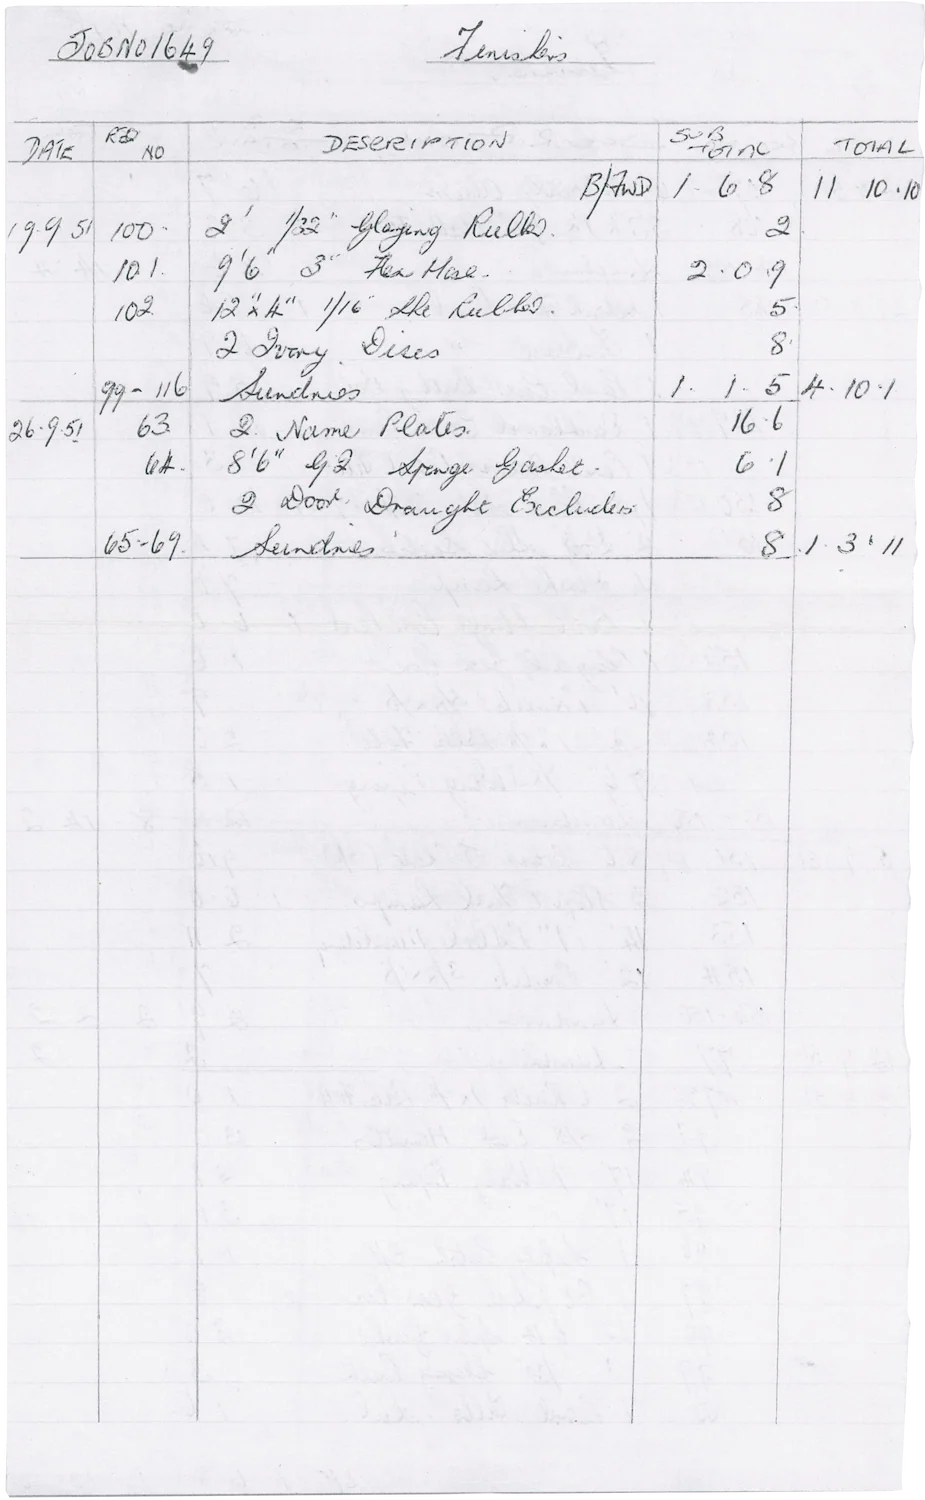 JOB NO 1649 Finishers
DATE REQ NO DESCRIPTION SUB TOTAL TOTAL
B/FWD 1 - 6 - 8 11 - 10 - 10
19.9.51 100 2' 1/32" Glazing Rubber. 2
101. 9'6" 3" Flex Hose. 2 - 0 - 9
102 12"x4" 1/16" Rubber. 5
2 Ivory Discs 8
99 - 116 Sundries 1 - 1 - 5 4 - 10 - 1
26.9.51 63 2 Name Plates 16.6
64. 8'6" Sponge Gasket. 6.1
2 Door Draught Excluders 8
65-69. Sundries 8 1 - 3 - 11